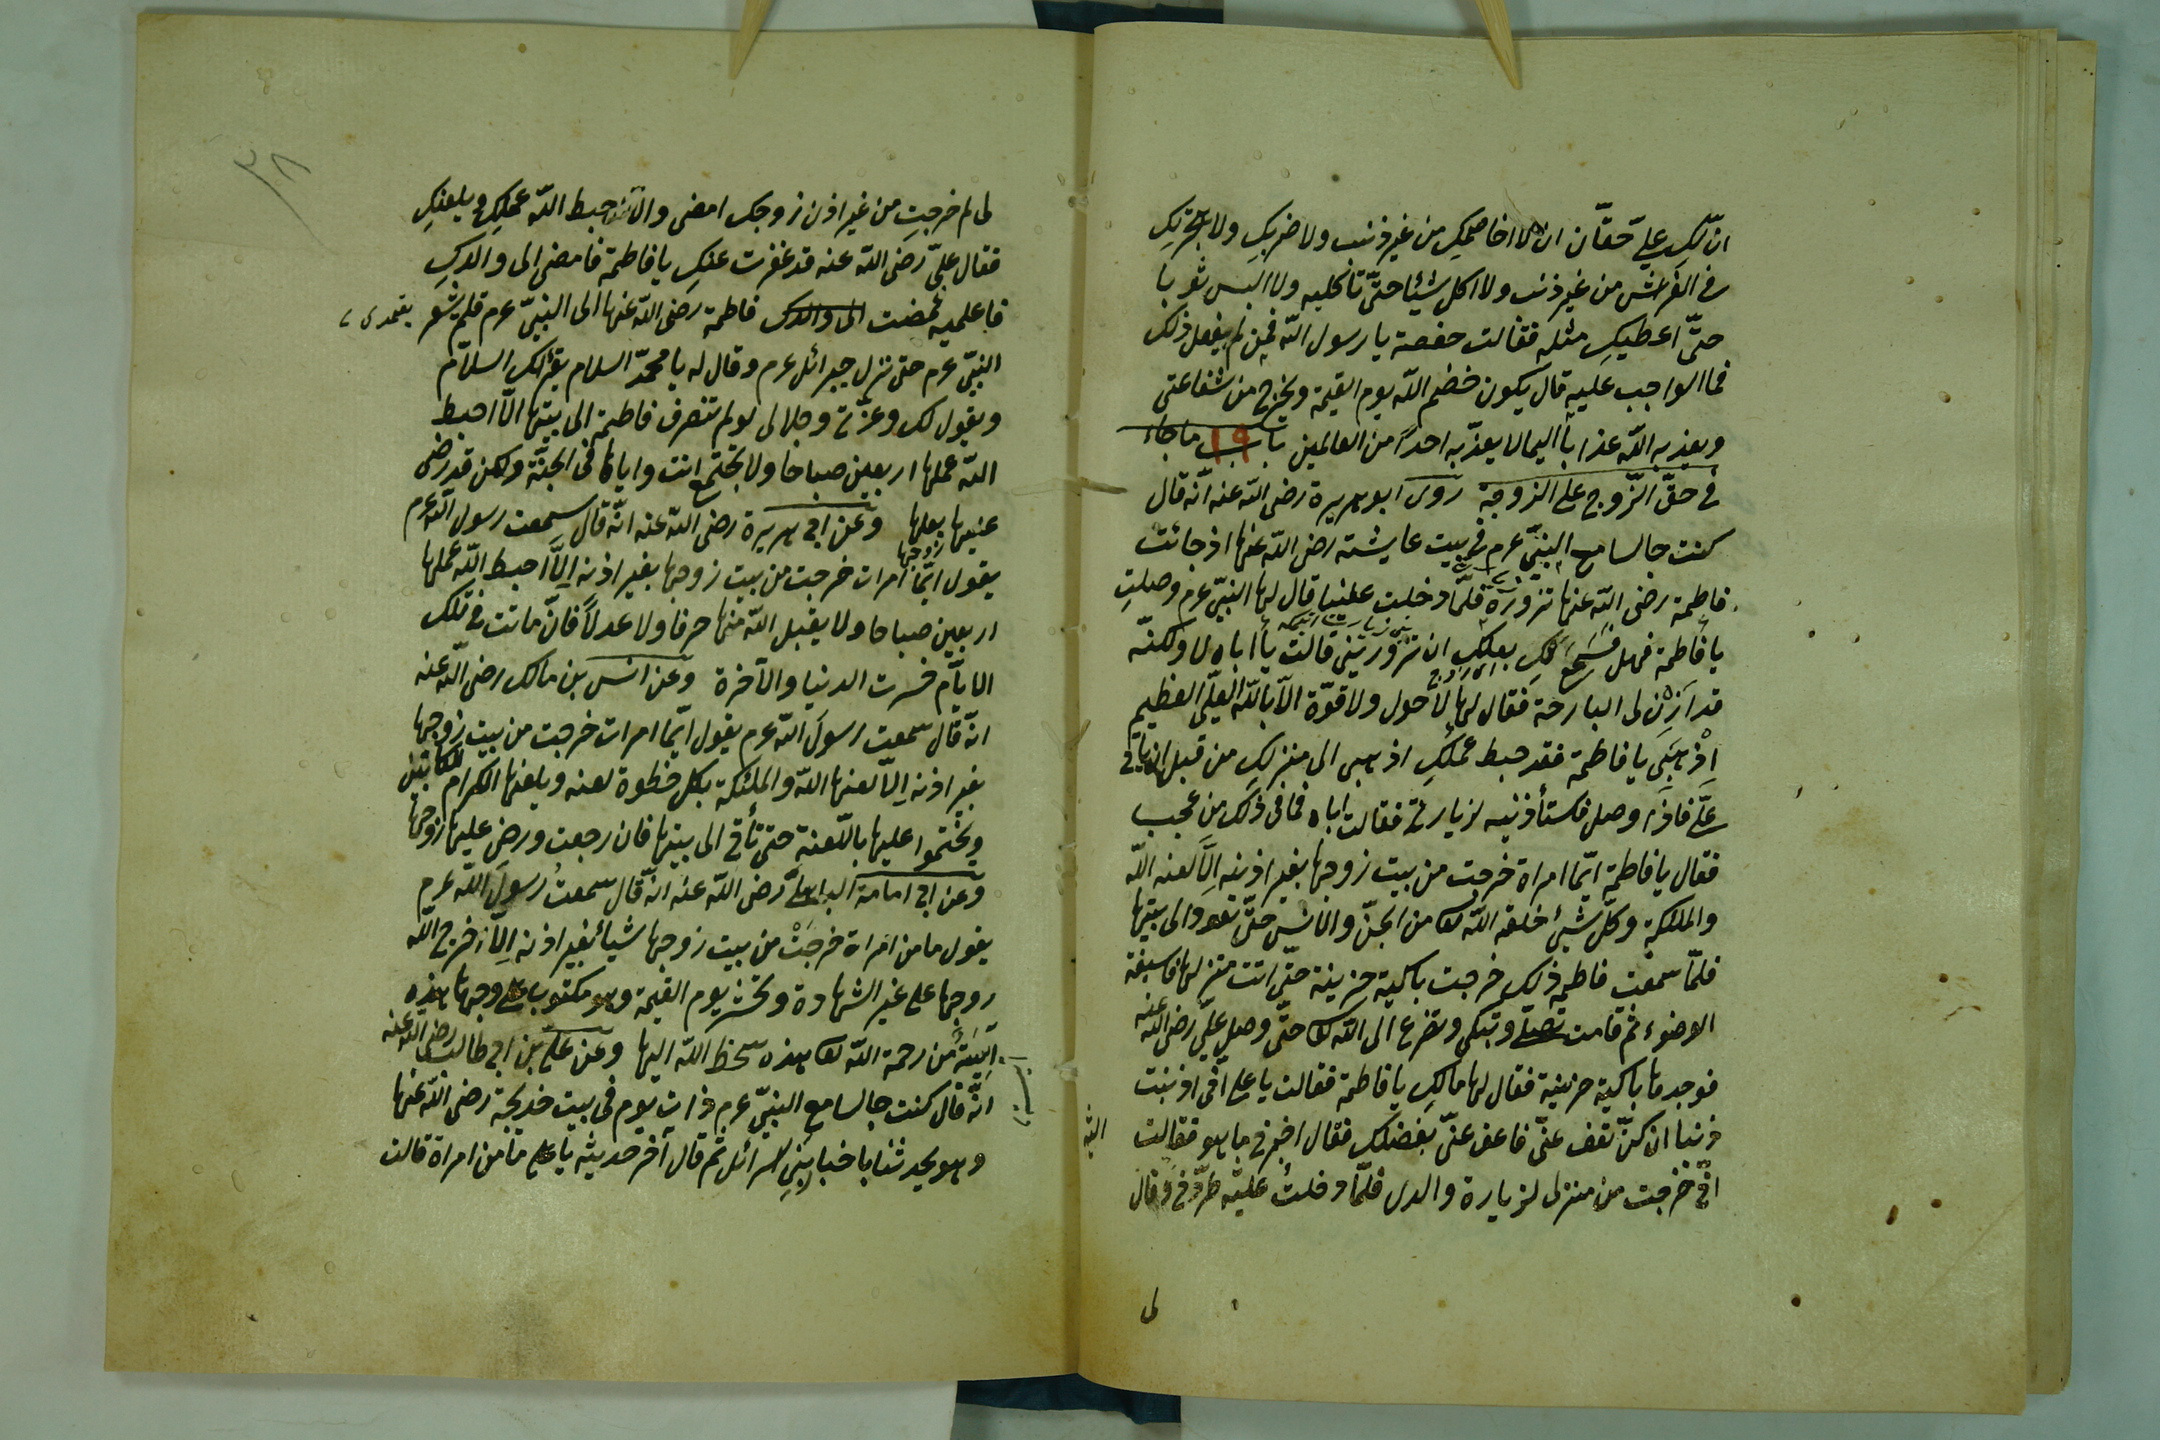 انّ لكِ عليّ حقّان ان لا اخاصمكِ من غير ذنب ولا ضربكِ ولا هجرتكِ
فى الفراش من غير ذنب ولا اكل شيئا حتّى تأكليه ولا البس ثوبا
حتّى اعطيكِ مثله فقالت حفصة يا رسول الله فمن لم يفعل ذلك
فما الواجب عليه قال يكون خضم الله يوم القيمة ويخرج من شفاعتى
ويعذبه الله عذابا اليما لا يعذّبه احداً من العالمين باب ١٩ ما جاء
فى حقّ الزّوج على الزوجة روى ابو هريرة رضى الله عنه انّه قال
كنت جالسا مع النبىّ عرم فى بيت عايشة رضى الله عنها اذ جائت
فاطمة رضى الله عنها تزوره فلمّا دخلت علينا قال لها النبىّ عرم وصلتِ
يا فاطمة فهل سمح لكِ بعلكِ ان تزورينى قالت يا اباه لا ولكنّه
قد اذن لى البارحة فقال لها لا حول ولا قوّة الّا بالله العلىّ العظيم
اذهبى يا فاطمة فقد حبط عملكِ اذهبى الى منزلكِ من قبل ان يأتى
علىّ فاذا وصل فستأذنيه لزيارتى فقالت اباه فما فى ذلك من عجب
فقال يا فاطمة ايّما امراة خرجت من بيت زوجها بغير اذنه الّا لعنه الله
والملئكة وكلّ شيئ خلقه الله تعا من الجنّ والانس حتّى تعود الى بيتها
فلمّا سمعت فاطمة ذلك خرجت باكية حزينة حتّى اتت منزلها فاسبغة
الوضوء ثم قامت تصلّى وتبكى وتضرع الى الله تعا حتّى وصل علىّ رضى الله عنه
فوجدها باكية حزينة فقال لها مالكِ يا فاطمة فقالت يا على انّى اذنبت
ذنبا ان كنّ تقف عنّى فاعف عنّى بفضلك فقال اخبرنى ما هو فقالت
انّى خرجت من منزلى لزيارة والدى فلمّا دخلتُ عليه طرّدنى وقال
لى
٣٨
لى لم خرجتِ من غير اذن زوجك امضى والّا حبط الله عملكِ ويلعنكِ
فقال علىّ رضى الله عنه قد غفرت عنكِ يا فاطمة فامضى الى والدكِ
فاعلميه فمضت الى والدك فاطمة رضى الله عنها الى النبىّ عرم فلم يشعر
النبىّ عرم حتى نزل جبرائل عرم وقال له يا محمّد السلام يقرئك السلام
ويقول لك وعزّتى وجلالى لو لم تنصرف فاطمة الى بيتها الّا احبط
الله عملها اربعين صباحا ولا تجتمع انت واياها فى الجنّة ولكن قد رضى
عنها بعلها وعن ابى هريرة رضى الله عنه انّه قال سمعت رسول الله عرم
يقول ايّما امرات خرجت من بيت زوجها بغير اذنه الّا احبط الله عملها
اربعين صباحا ولا يقبل الله منها صرفا ولا عدلاً فانّ ماتت فى تلك
الايّام خسرت الدنيا والآخرة وعن انس بن مالك رضى الله عنه
انّه قال سمعت رسول الله عرم يقول ايّما امرات خرجت من بيت زوجها
بغير اذنه الّا لعنها الله والملئكة بكل خطوة لعنه ويلعنها الكرام الكاتبين
ويختموا عليها باللّعنة حتى تأتى الى بيتها فان رجعت ورضى عليها زوجها
وعن ابى امامة الباهلىّ رضى الله عنه انّه قال سمعتُ رسول الله عرم
يقول ما من امراة خرجَتْ من بيت زوجها شيأ بغير اذنه الّا اخرج الله
روحها على غير الشهادة وتحشر يوم القيمة وهو مكتوب على وجهها هذه
آيسة من رحمة الله تعا هذه سخط الله اليها وعن على بن ابى طالب رضى الله عنه
انّه قال كنت جالسا مع النبىّ عرم ذات يوم فى بيت خديجة رضى الله عنها
وهو يحدثنا باخبار بنى اسرائل ثم قال آخر حديثه يا على ما من امراة قالت